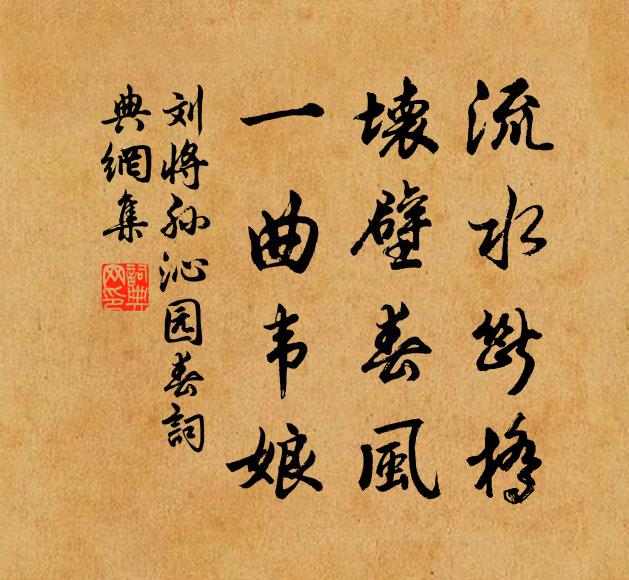 流水断橋
壊壁春風
一曲韦娘
刘将孙沁园春詞
典網集
詞典網印